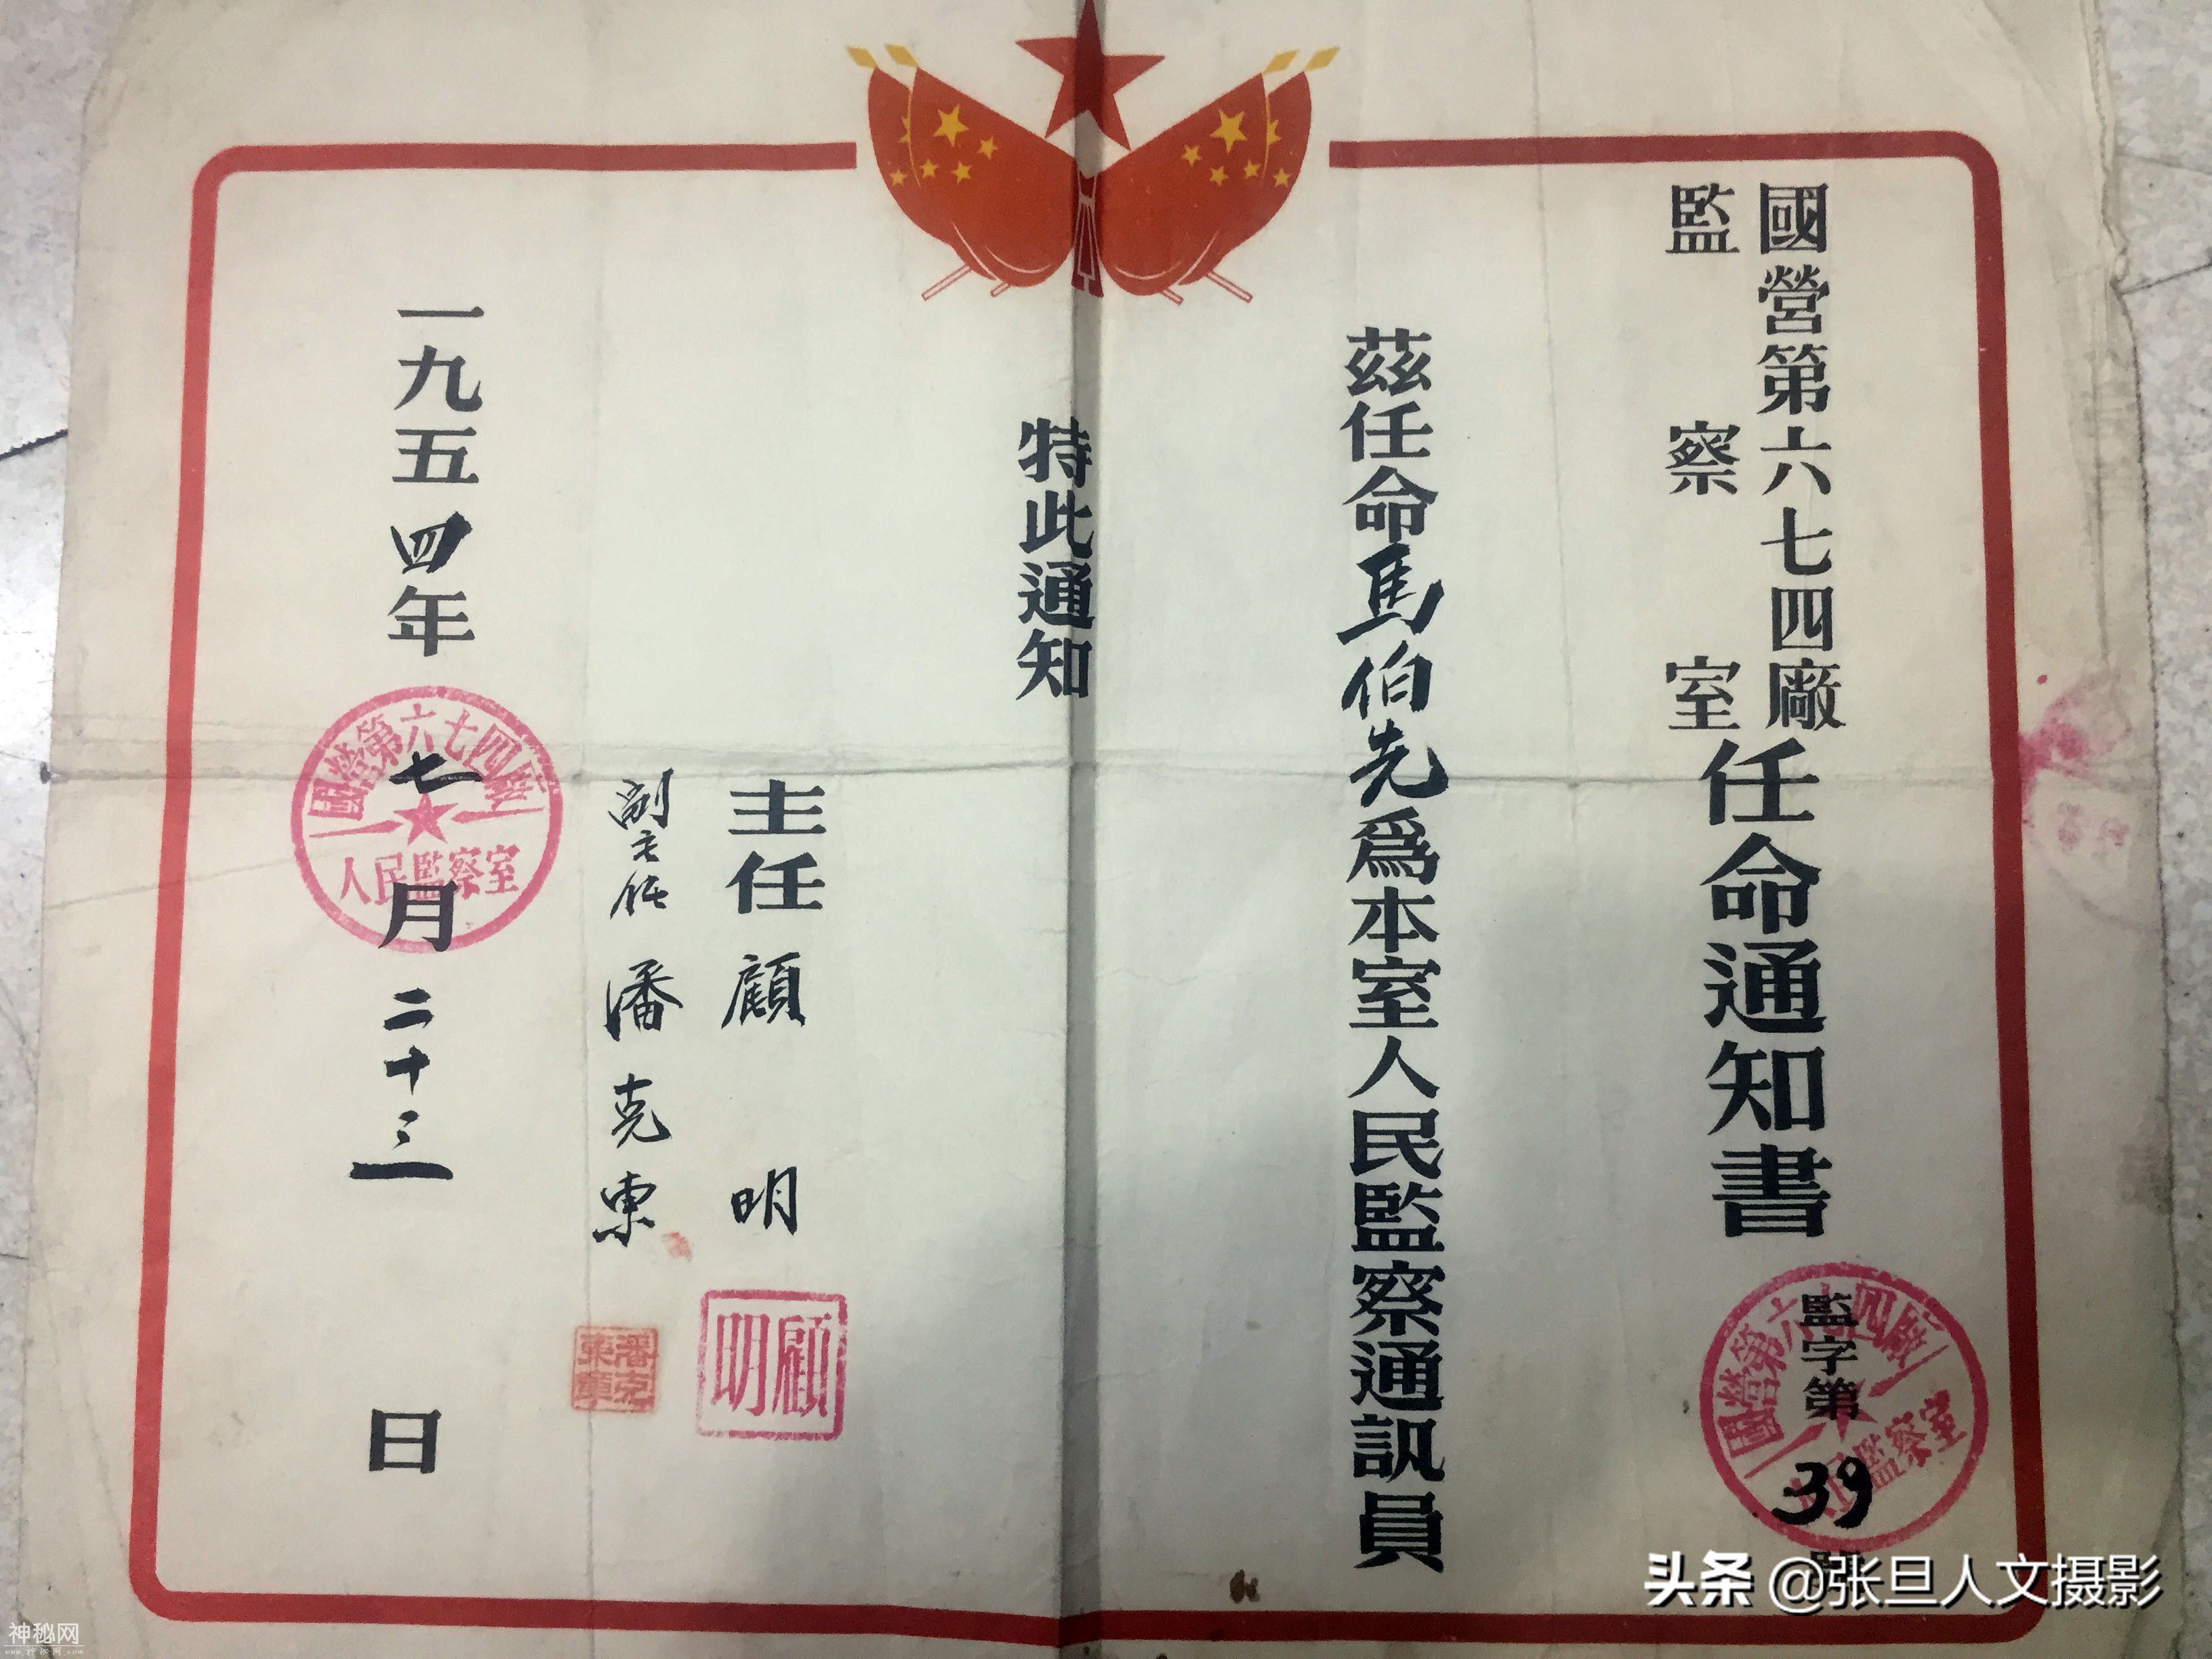 國營第六七四廠
監察室
任命通知書
監字第39號
國營第六七四廠
人民監察室
茲任命馬伯先爲本室人民監察通訊員
特此通知
主任 顧明
顧明
副主任 潘克東
潘克東章
一九五四年七月二十三日
國營第六七四廠
人民監察室
头条 @张旦人文摄影
神秘网